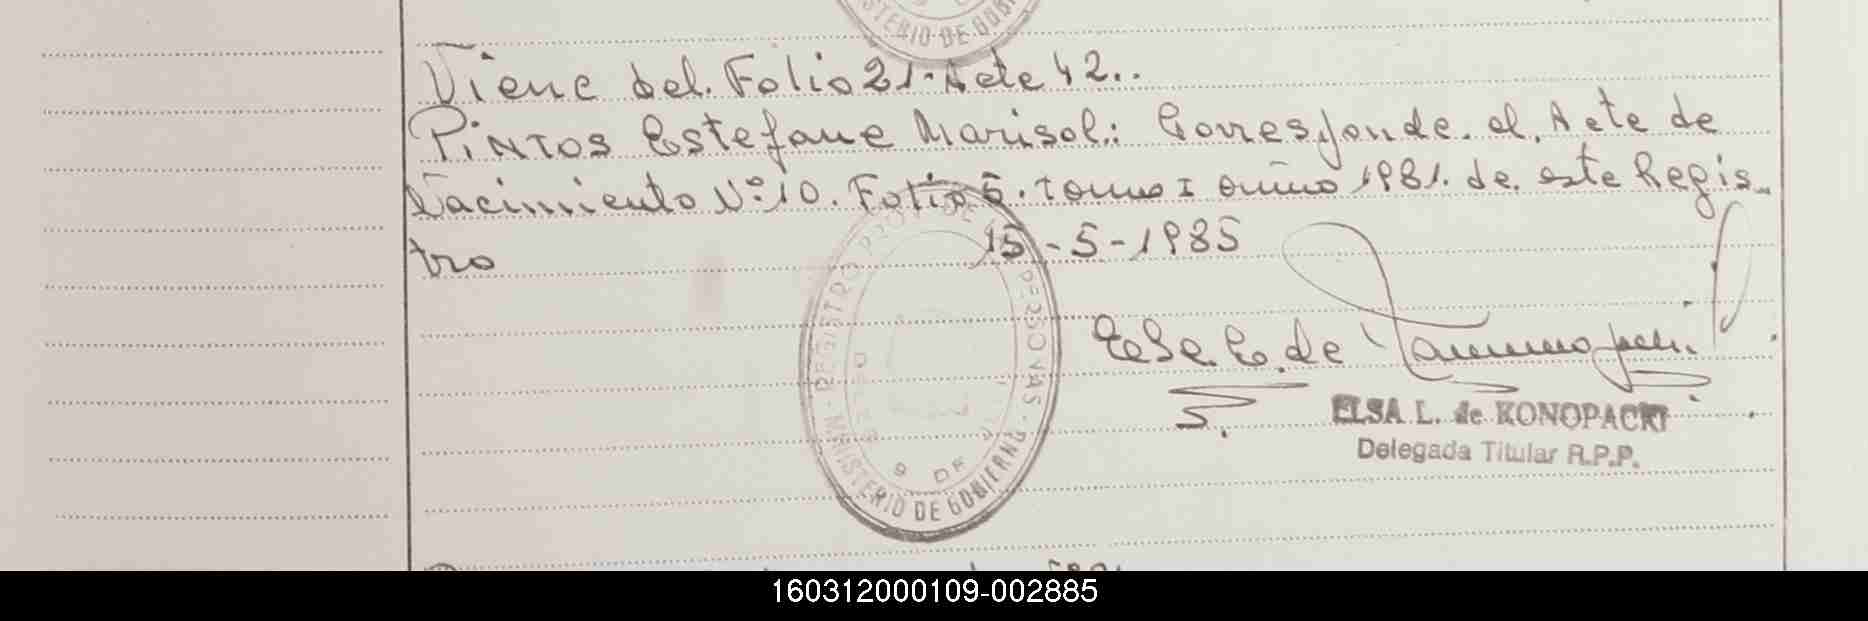 MINISTERIO DE GOBIERNO
Viene del Folio 21. Acta 42..
Pintos Estefana Marisol: Corresponde al Acta de
Nacimiento Nº 10. Folio 5. tomo I año 1981. de este Regis-
tro 15-5-1985
REGISTRO PROV. DE PERSONAS
MINISTERIO DE GOBIERNO
Elsa L. de Konopacki
ELSA L. de KONOPACKI
Delegada Titular R.P.P.
160312000109-002885